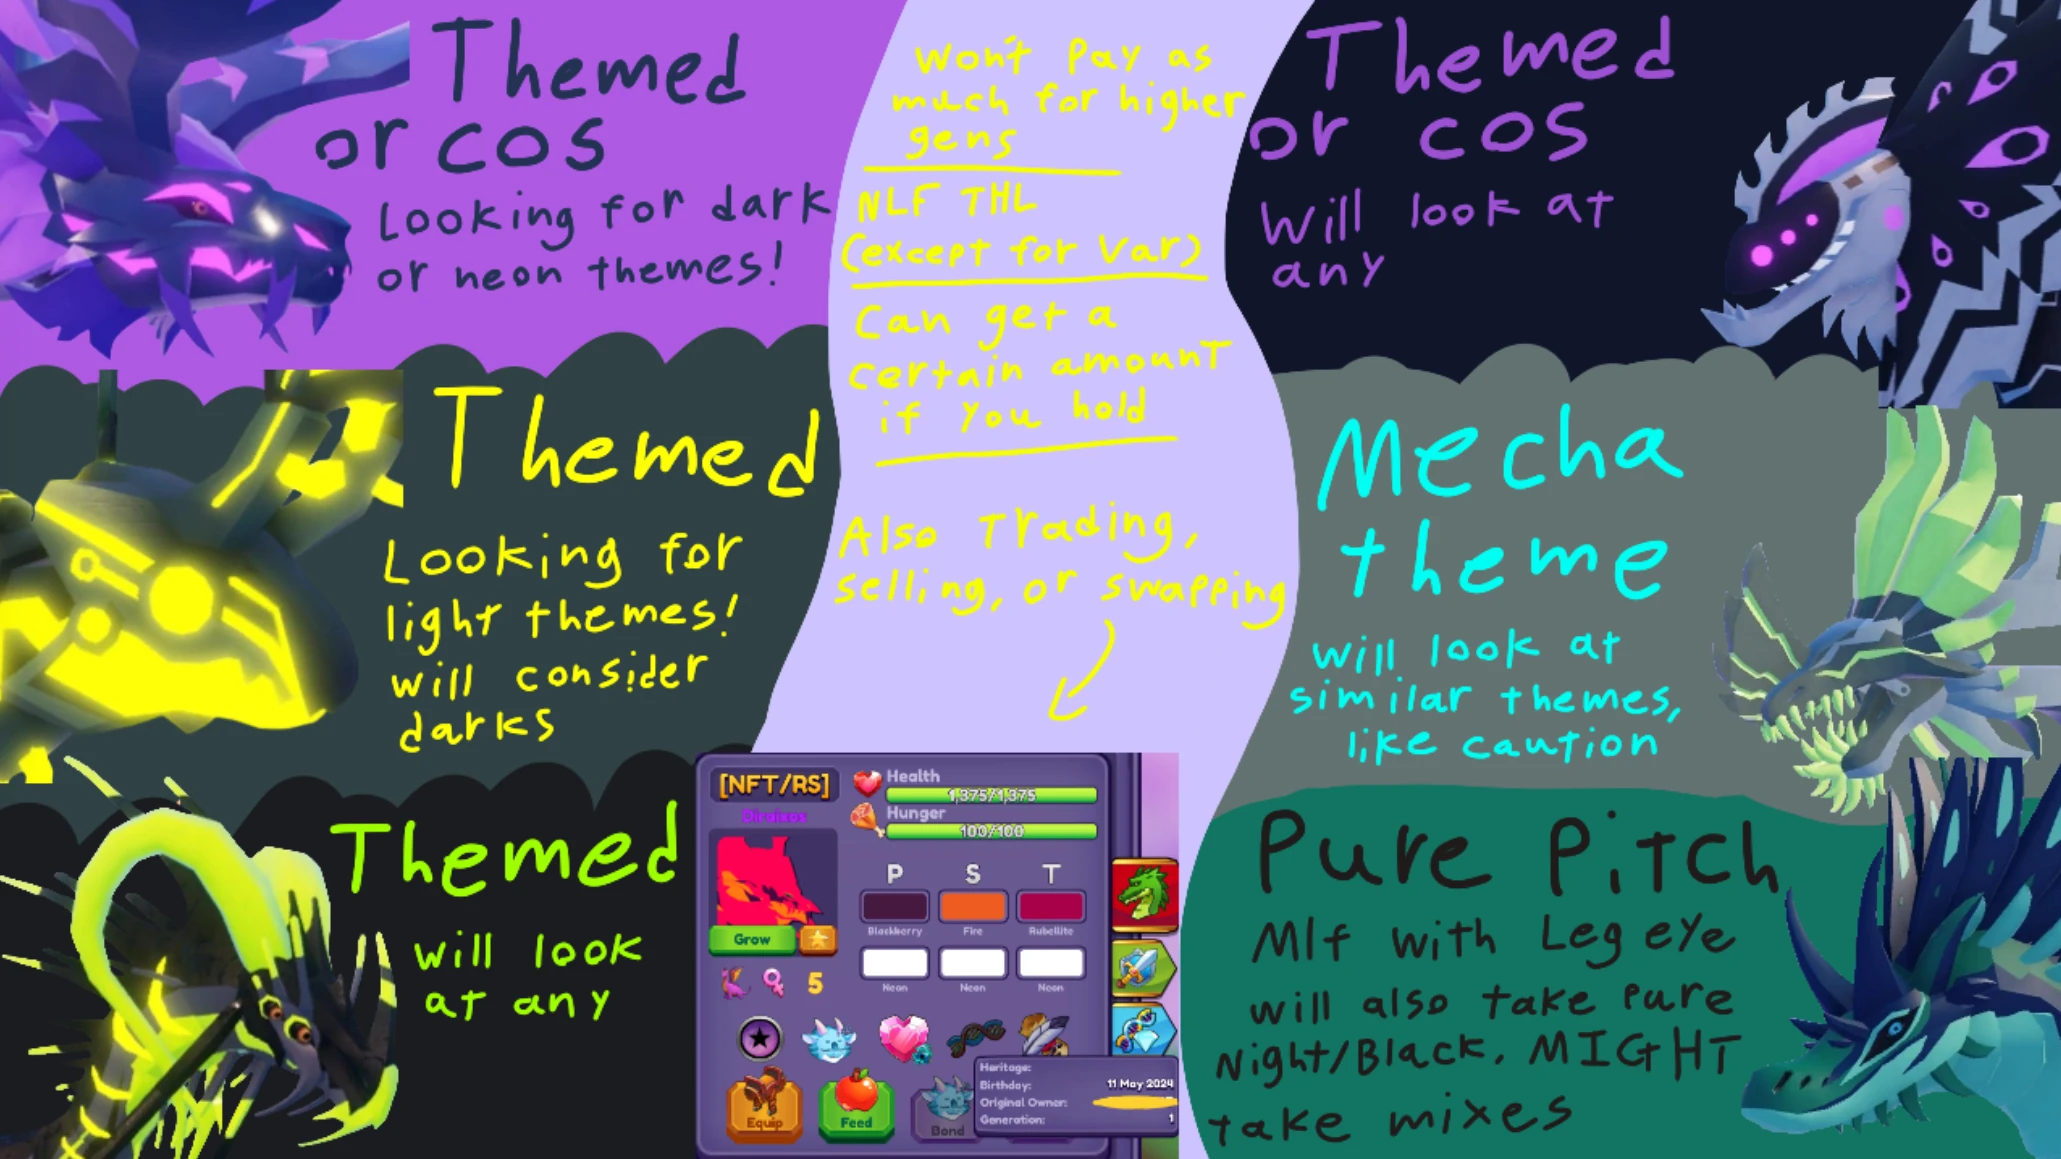 Themed
or cos
Looking for dark
or neon themes!
Themed
Looking for
light themes!
will consider
darks
Themed
will look
at any
Won't Pay as
much for higher
gens
NLF THL
(except for Var)
Can get a
certain amount
if you hold
Also Trading,
selling, or swapping
[NFT/RS]
Diraixos
Health
1,375/1,375
Hunger
100/100
P S T
Blackberry Fire Rubellite
Neon Neon Neon
Grow
5
Heritage:
Birthday: 11 May 2024
Original Owner:
Generation: 1
Equip
Feed
Bond
Themed
or cos
Will look at
any
Mecha
theme
will look at
similar themes,
like caution
Pure Pitch
Mlf with Leg eye
will also take pure
Night/Black. MIGHT
take mixes